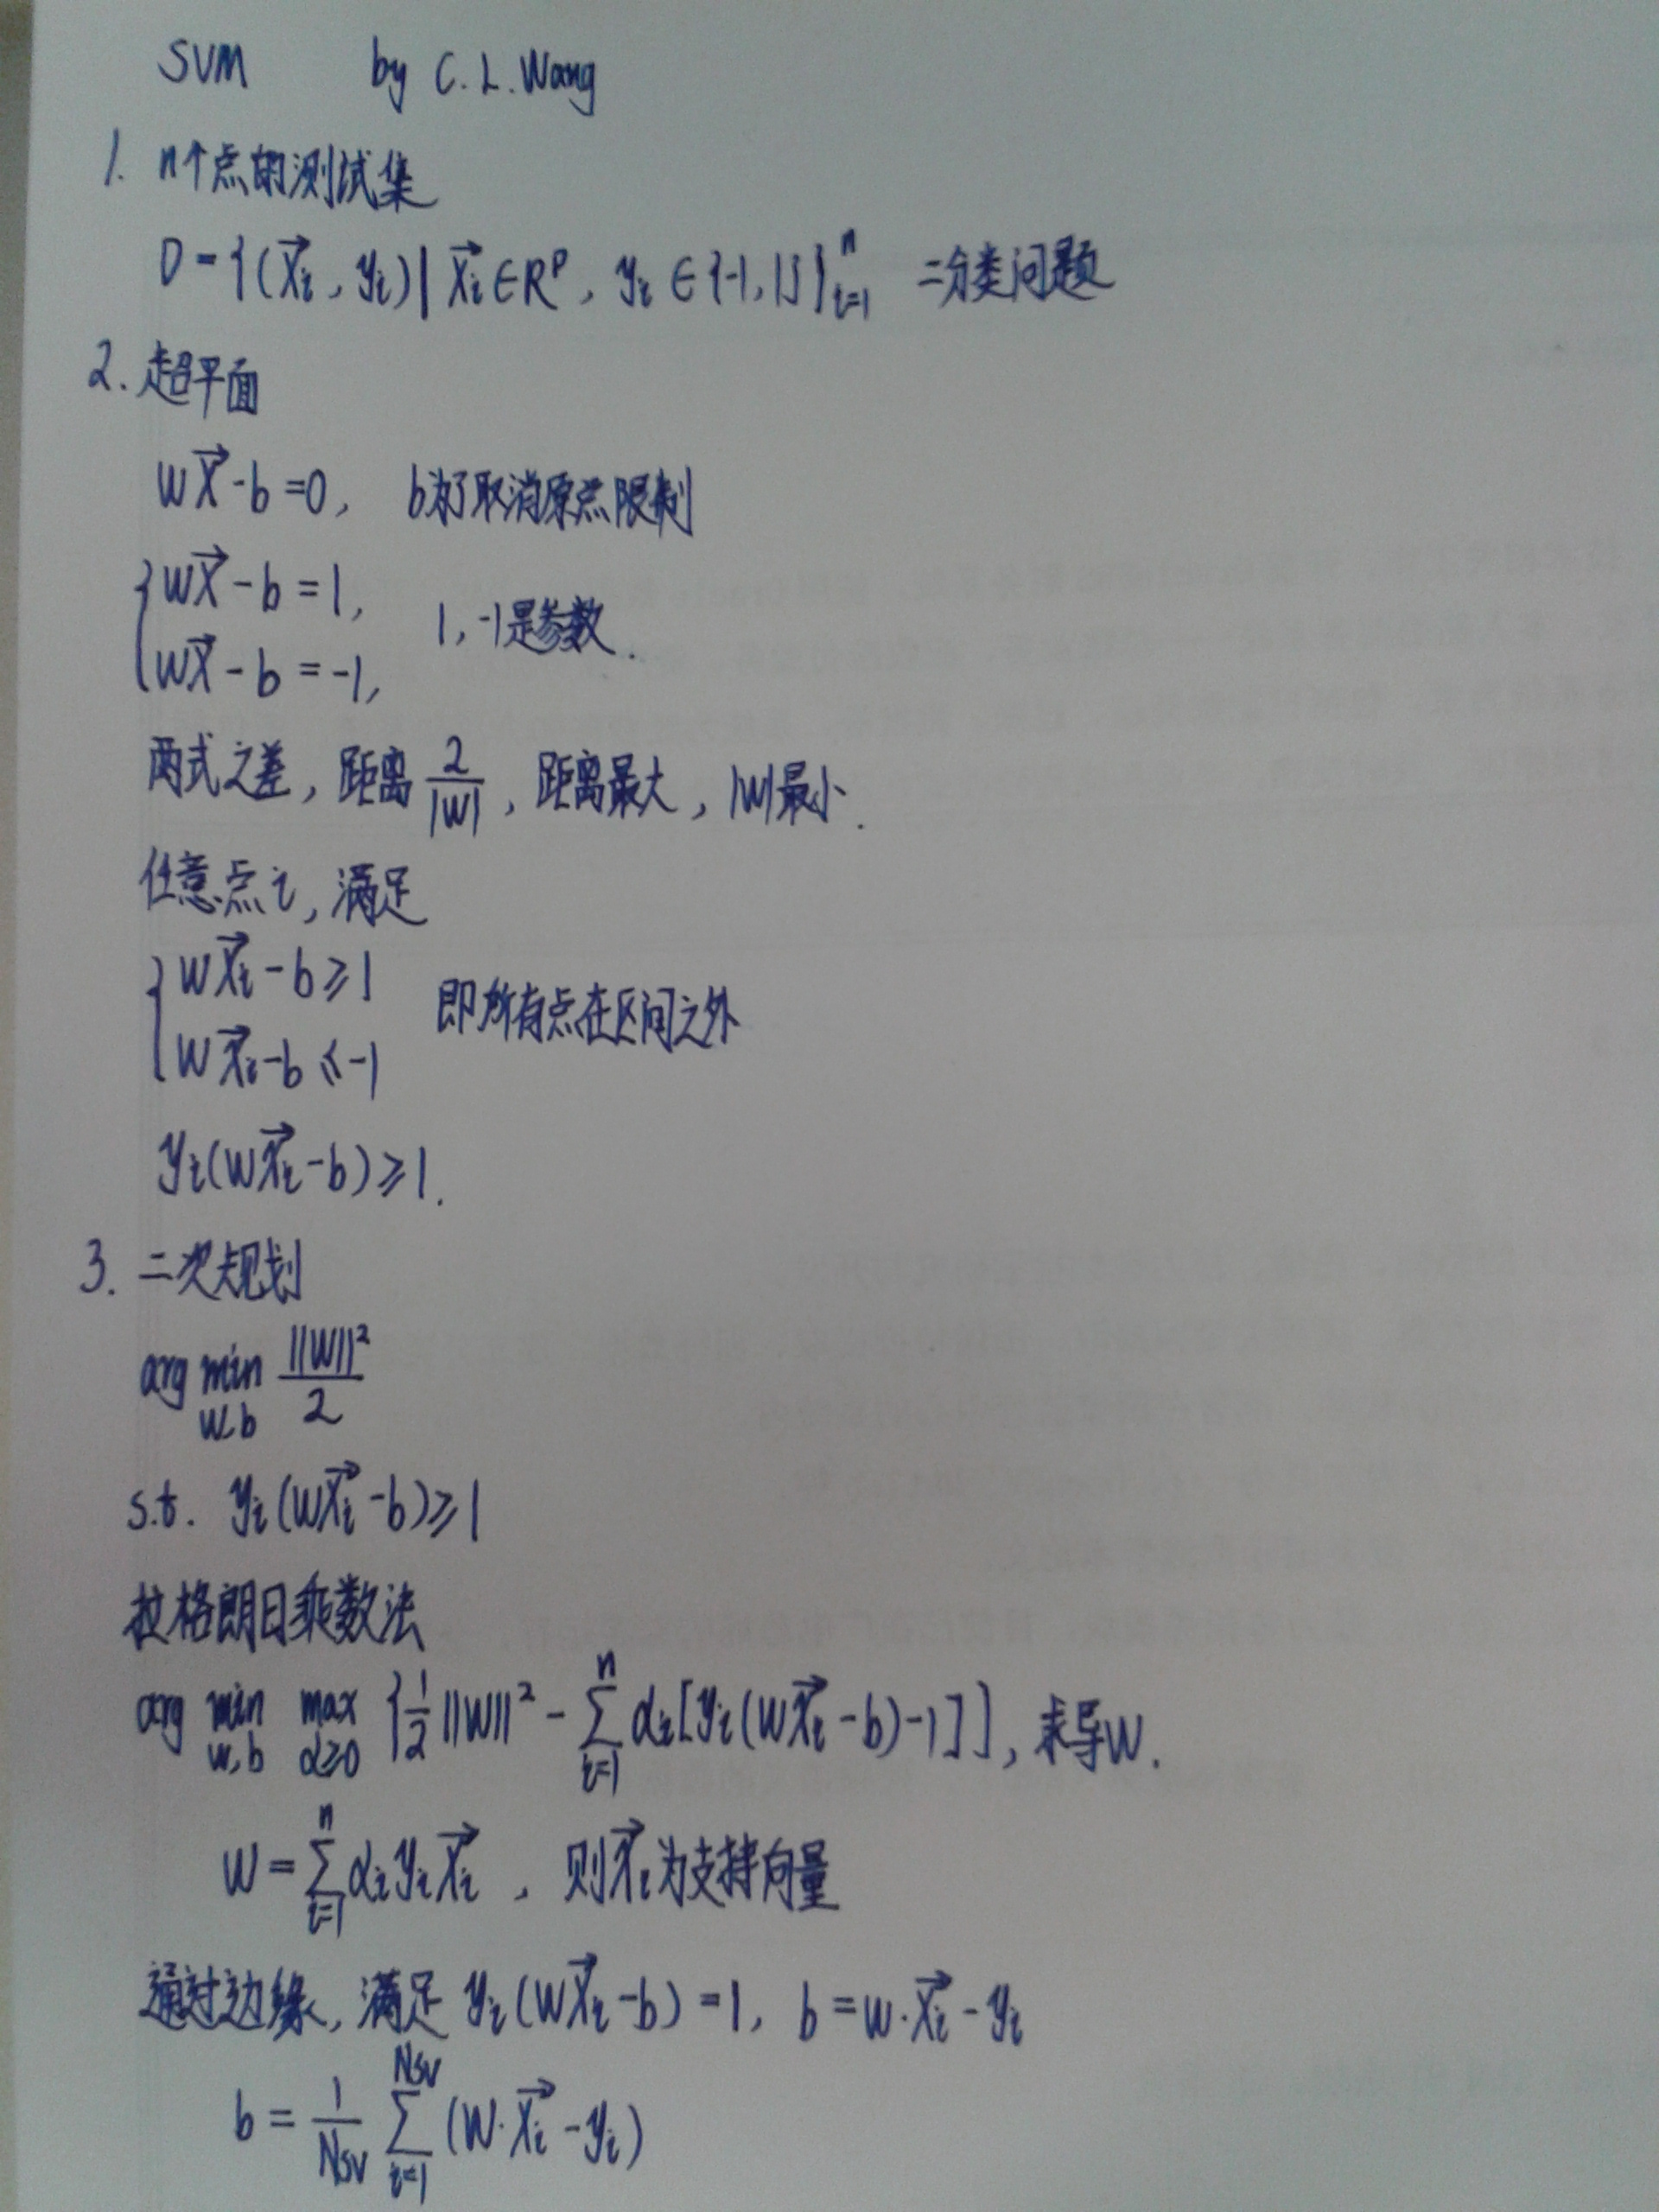 SVM by C.L.Wang
1. n个点的测试集
D={(x⃗ᵢ, yᵢ)| x⃗ᵢ∈Rᵖ, yᵢ∈{-1,1}}ⁿᵢ₌₁ 二分类问题
2. 超平面
wx⃗-b=0, b为了取消原点限制
{wx⃗-b=1,
1,-1是参数.
wx⃗-b=-1,
两式之差, 距离 2/|w|, 距离最大, |w|最小.
任意点i, 满足
{wx⃗ᵢ-b≥1
即所有点在区间之外
wx⃗ᵢ-b≤-1
yᵢ(wx⃗ᵢ-b)≥1.
3. 二次规划
arg min_{w,b} ||w||²/2
s.t. yᵢ(wx⃗ᵢ-b)≥1
拉格朗日乘数法
arg min_{w,b} max_{α≥0} {1/2 ||w||² - ∑ⁿᵢ₌₁ αᵢ[yᵢ(wx⃗ᵢ-b)-1]}, 求导w.
w=∑ⁿᵢ₌₁ αᵢyᵢx⃗ᵢ, 则x⃗ᵢ为支持向量
通过边缘, 满足 yᵢ(wx⃗ᵢ-b)=1, b=w·x⃗ᵢ-yᵢ
b=1/Nsv ∑_{i=1}^{Nsv} (w·x⃗ᵢ-yᵢ)